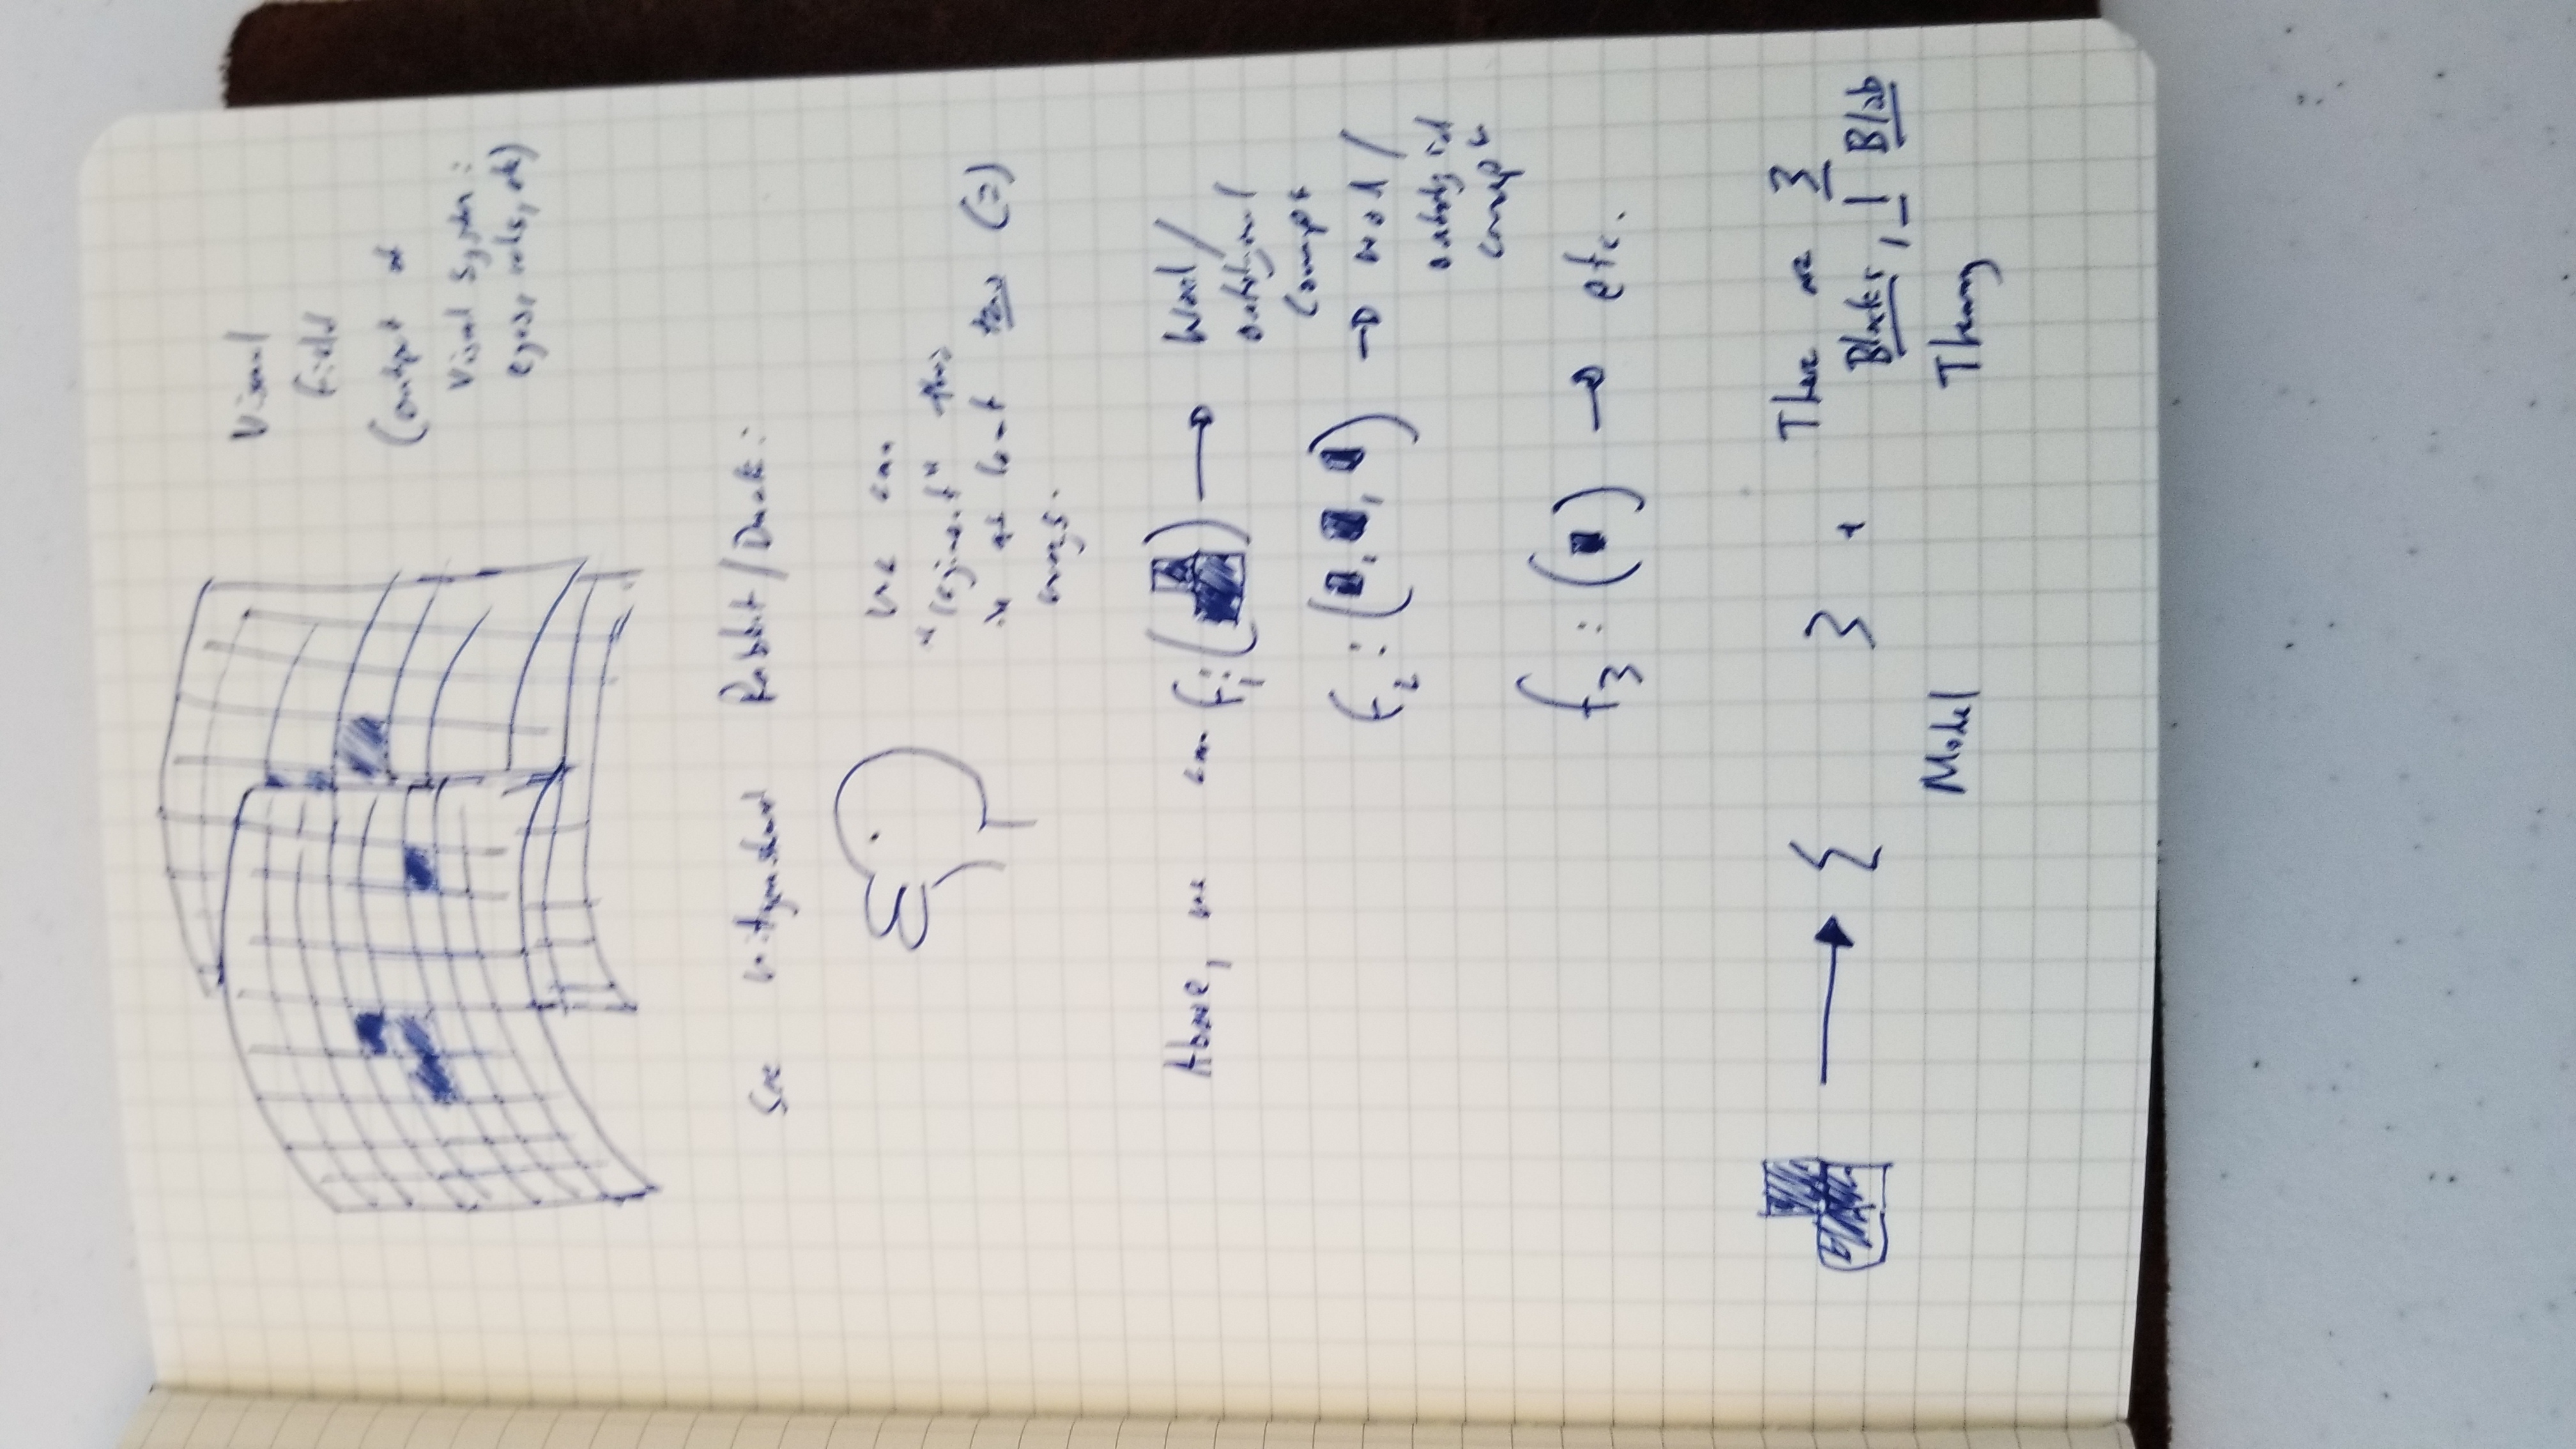 Visual
Field
(output of
Visual System:
eyes, rods, etc)
See Wittgenstein's Rabbit/Duck:
we can
"segment" this
in at least two (2)
ways.
Above, we can f₁: ( ) → Word/
ontological
concept
f₂ : ( , , ) → word/
ontological
concept
f₃ : ( ) → etc.
→ { } + There are 3
Blocks, 1 Blob
Model Theory